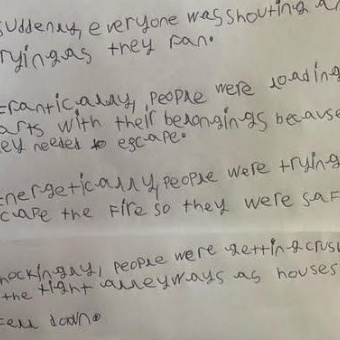 suddenly, everyone was shouting an
rying as they ran.
frantically, people were loading
arts with their belongings because
hey needed to escape.
energetically, people were trying
cape the fire so they were saf
hockingly, people were getting crus
the tight alleyways as houses
fell down.